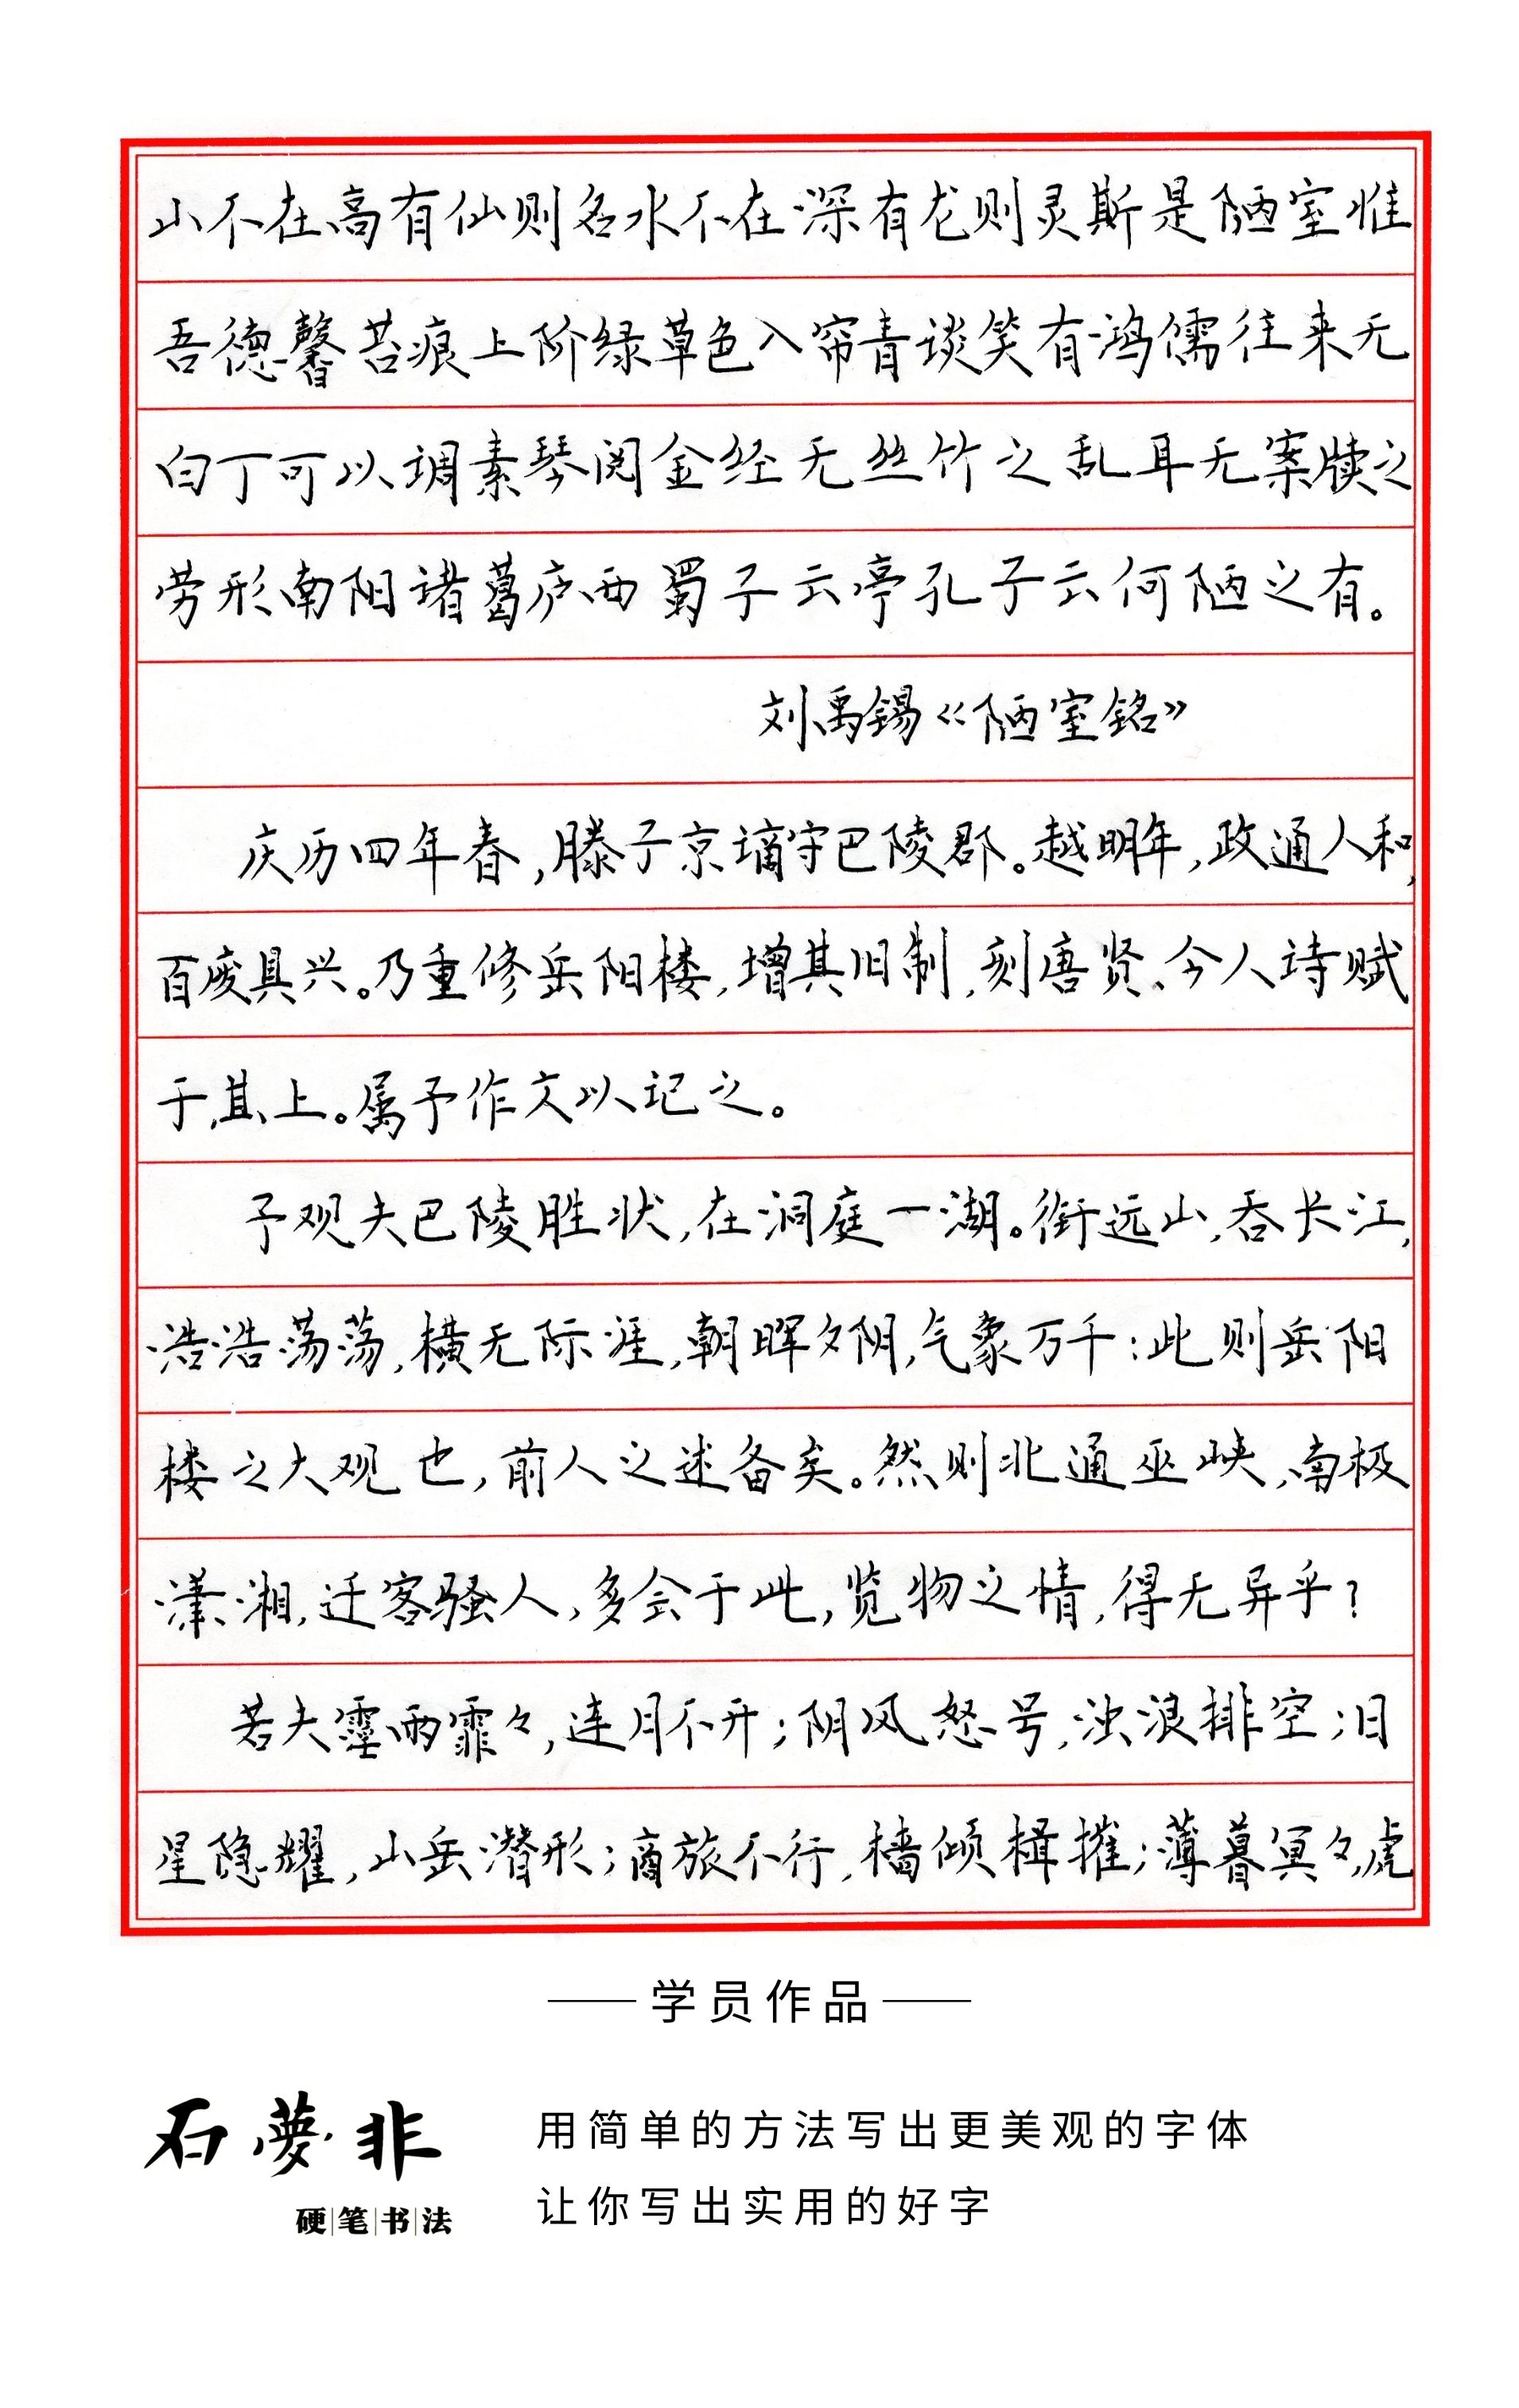 山不在高有仙则名水不在深有龙则灵斯是陋室惟
吾德馨苔痕上阶绿草色入帘青谈笑有鸿儒往来无
白丁可以调素琴阅金经无丝竹之乱耳无案牍之
劳形南阳诸葛庐西蜀子云亭孔子云何陋之有。
刘禹锡《陋室铭》
庆历四年春,滕子京谪守巴陵郡。越明年,政通人和,
百废具兴。乃重修岳阳楼,增其旧制,刻唐贤、今人诗赋
于其上。属予作文以记之。
予观夫巴陵胜状,在洞庭一湖。衔远山,吞长江,
浩浩荡荡,横无际涯,朝晖夕阴,气象万千:此则岳阳
楼之大观也,前人之述备矣。然则北通巫峡,南极
潇湘,迁客骚人,多会于此,览物之情,得无异乎?
若夫霪雨霏々,连月不开;阴风怒号,浊浪排空;日
星隐耀,山岳潜形;商旅不行,樯倾楫摧;薄暮冥々,虎
学员作品
石夢非
硬笔书法
用简单的方法写出更美观的字体
让你写出实用的好字